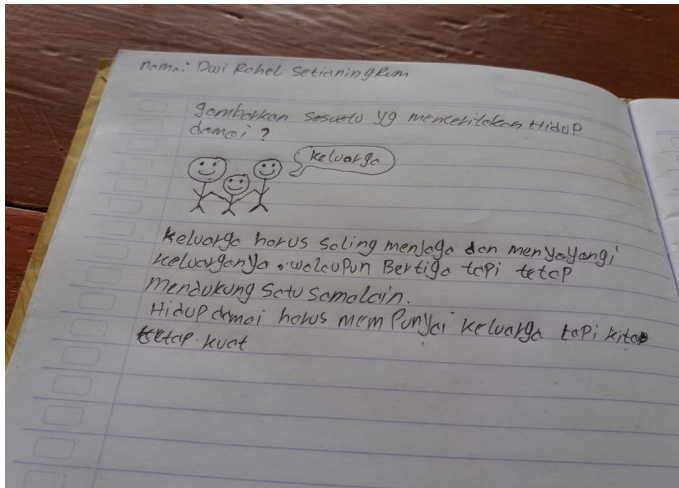 nama: Dwi Rahel SetianingRum
gambarkan sesuatu yg menceritakan Hidup
damai ?
keluarga
keluarga harus saling menjaga dan menyayangi
keluarganya. walaupun Bertiga tapi tetap
mendukung satu samalain.
Hidup damai harus mempunyai keluarga tapi kita
tetap. kuat